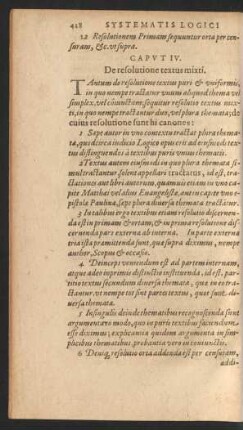 428 SYSTEMATIS LOGICI
12 Resolutionem Primam sequuntur orta per censuram, &c. ut supra.
CAPVT IV.
De resolutione textus mixti.
TAntum de resolutione textus puri & uniformis,
in quo nempe tractatur unum aliquod thema vel
simplex, vel conjunctum; sequitur resolutio textus mixti, in quo nempe tractantur duo, vel plura themata; de
cuius resolutione sunt hi canones:
1 Sæpe autor in uno contextu tractat plura themata,
textus distinguendos à textibus puris unius thematis.
2 Textus autem eiusmodi in quo plura themata simul tractantur solent appellari tractatus, id est, tractationes
aut libri aut
pite Matthæi vel alius Evangelistæ, aut
pistola Paulina, sæpe plura diversa themata tractantur.
3 In talibus ergo textibus etiam resolutio discernenda est in primam & ortam, & in prima resolutione discernenda pars externa ab interna. In parte externa
ista præmittenda sunt, quæ supra diximus, nempe
author, Scopus & occasio.
4 Deinceps veniendum est ad partem internam,
atque adeo in primis distinctio instituenda, id est, partitio textus secundum diversa themata, quæ in eo tractantur, ut nempe tot sint partes textus, quot sunt diversa themata.
5 In singulis deinde thematibus recognoscenda sunt
argumenta eo modo, quo in puris textibus faciendum
esse diximus; explicantia quidem argumenta in simplicibus thematibus, probantia vero in coniunctis.
6 Deniq; resolutio orta addenda est per censuram,
addi-